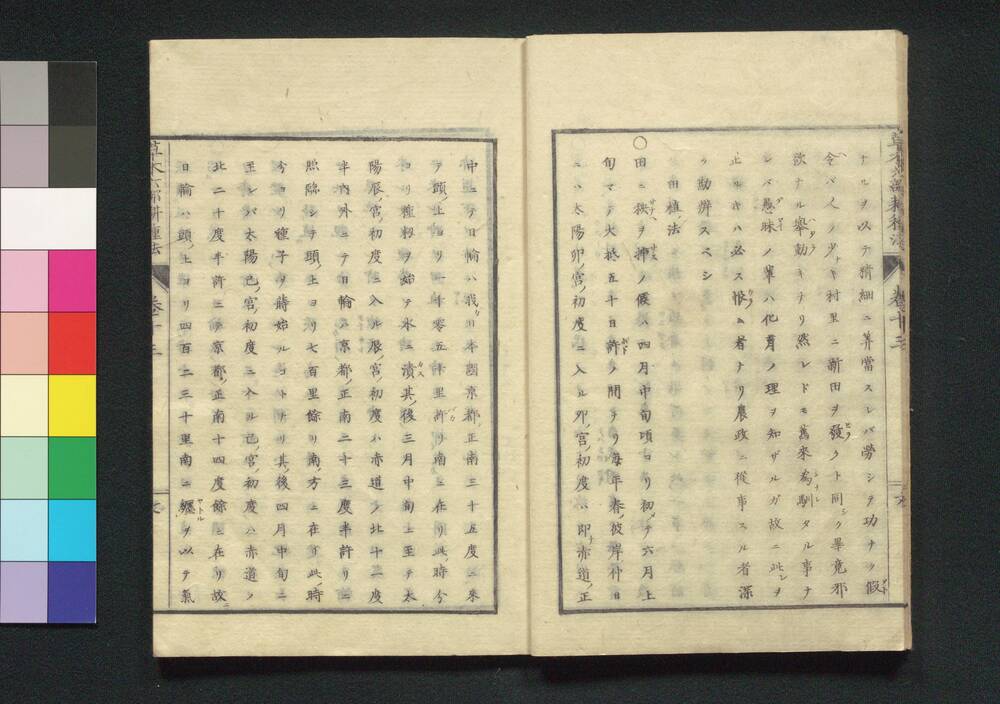 ナルヲ以テ精細ニ算當スレバ勞シテ功ナク假
令バ人ノ少キ村里ニ新田ヲ發クト同ク畢竟邪
欲ナル擧動キナリ然レドモ舊來為馴タル事ナ
レバ愚昧ノ輩ハ化育ノ理ヲ知ザルガ故ニ此ヲ
止ルキハ必ス恨ム者ナリ農政ニ從事スル者深
ク勘辨スベシ
田植法
○田ニ秧ヲ挿ノ假ハ四月中旬頃ヨリ初テ六月上
旬マデ大抵五十日許ノ間ナリ每年春ノ彼岸仲日
ニハ太陽卯ノ宮ノ初度ニ入ル卯ノ宮ノ初度ハ即ナ赤道ノ正
中ニテ日輪ハ我カ日本國京都ノ正南三十五度ニ來
テ頭ノ上ヨリ一千零五十里許リ南ニ在リ此時今
ヨリ種籾ヲ始テ水ニ漬其後三月中旬ニ至テ太
陽辰ノ宮ノ初度ニ入ル辰ノ宮ノ初度ハ赤道ノ北十二度
半內外ニテ日輪ハ京都ノ正南二十三度半許リニ
照臨シテ頭ノ上ヨリ七百里餘リ南方ニ在リ此ノ時
今ヨリ種子ヲ蒔始ルコトナリ其後四月中旬ニ
至レバ太陽已ノ宮ノ初度ニ入ル已ノ宮ノ初度ハ赤道ノ
北二十度半許ニシテ京都ノ正南十四度餘ニ在リ故ニ
日輪ハ頭ノ上ヨリ四百二三十里南ニ纒ヲ以テ氣
草木六部耕種法 卷十三